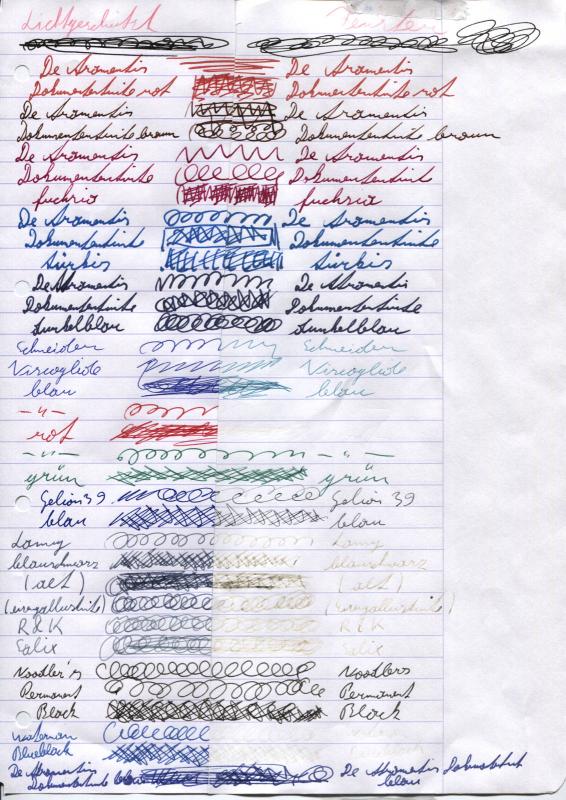 Lichtgeschützt Fenster
De Atramentis De Atramentis
Dokumententinte rot Dokumententinte rot
De Atramentis De Atramentis
Dokumententinte braun Dokumententinte braun
De Atramentis De Atramentis
Dokumententinte Dokumententinte
fuchsia fuchsia
De Atramentis De Atramentis
Dokumententinte Dokumententinte
türkis türkis
De Atramentis De Atramentis
Dokumententinte Dokumententinte
dunkelblau dunkelblau
Schneider Schneider
Varioglide Varioglide
blau blau
-"-
rot
-"- -"-
grün grün
Gelion 39 Gelion 39
blau blau
Lamy Lamy
blauschwarz blauschwarz
(alt) (alt)
(eisengallustinte) (eisengallustinte)
R&K R&K
Salix Salix
Noodler's Noodlers
Permanent Permanent
Black Black
Waterman
Blueblack
De Atramentis De Atramentis Dokumententinte
Dokumententinte blau blau